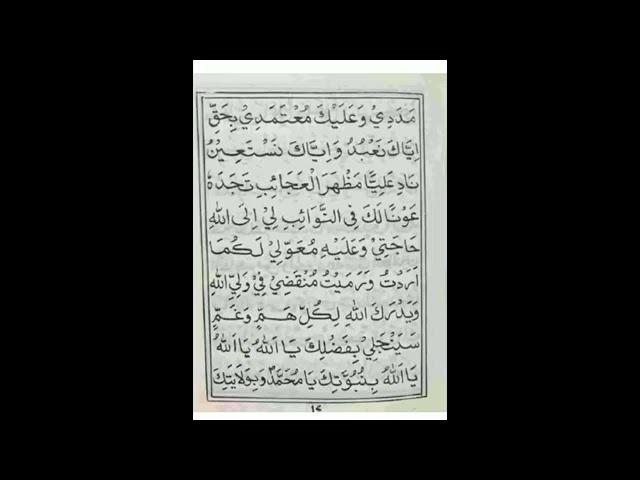 مَدَدِيْ وَعَلَيْكَ مُعْتَمَدِيْ بِحَقِّ
اِيَّاكَ نَعْبُدُ وَاِيَّاكَ نَسْتَعِيْنُ
نَادِ عَلِيًّا مَظْهَرَ الْعَجَائِبِ تَجِدْهُ
عَوْنًا لَكَ فِى النَّوَائِبِ لِيْ اِلَى اللهِ
حَاجَتِيْ وَعَلَيْهِ مُعَوَّلِيْ لَكُمَا
اَرَدْتُ وَرَمَيْتُ مُنْقَضِيْ فِيْ وَلِيِّ اللهِ
وَيُدْرِكَ اللهِ لِكُلِّ هَمٍّ وَغَمٍّ
سَيَنْجَلِيْ بِفَضْلِكَ يَا اَللهُ يَا اَللهُ
يَا اَللهُ بِنُبُوَّتِكَ يَا مُحَمَّدُ وَبِوِلَايَتِكَ
١٧